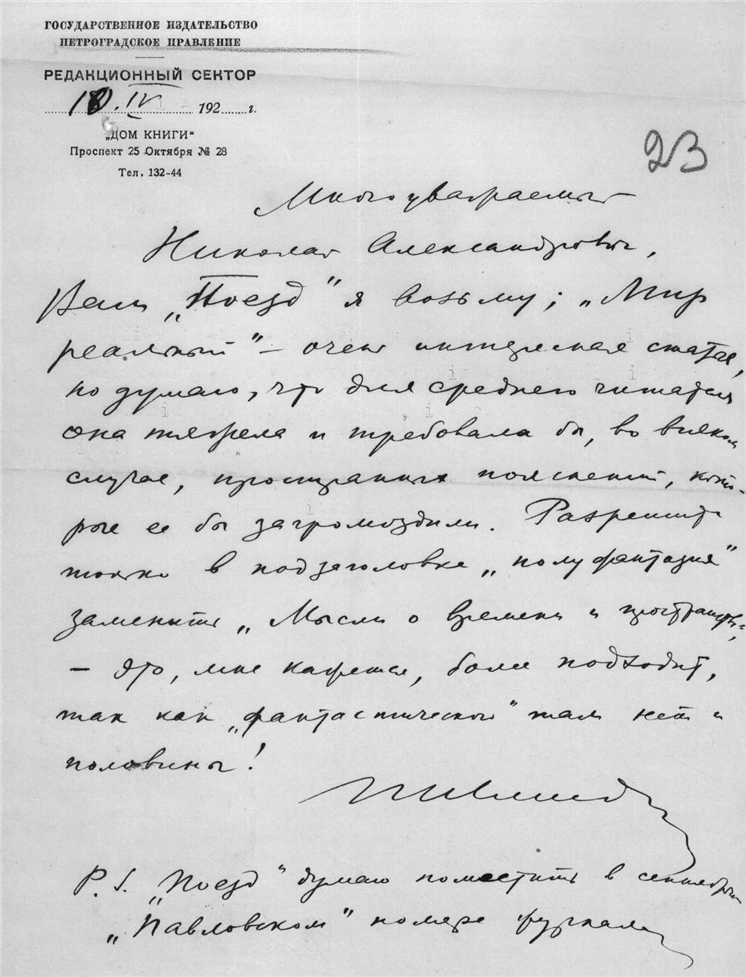 ГОСУДАРСТВЕННОЕ ИЗДАТЕЛЬСТВО
ПЕТРОГРАДСКОЕ ПРАВЛЕНИЕ
РЕДАКЦИОННЫЙ СЕКТОР
18.IV 192 г.
„ДОМ КНИГИ“
Проспект 25 Октября № 28
Тел. 132-44
23
Многоуважаемый
Николай Александрович,
Ваш „Поезд“ я возьму; „Мир
реальный“ – очень интересная статья,
но думаю, что для среднего читателя
она тяжела и требовала бы, во всяком
случае, пространных пояснений, кото-
рые ее бы загромоздили. Разрешите
только в подзаголовке „полуфантазия“
заменить „Мысли о времени и пространстве“,
– это, мне кажется, более подходит,
так как „фантастической“ там нет и
половины!
P. S. „Поезд“ думаю поместить в сентябрьском
„Павловском“ номере журнала